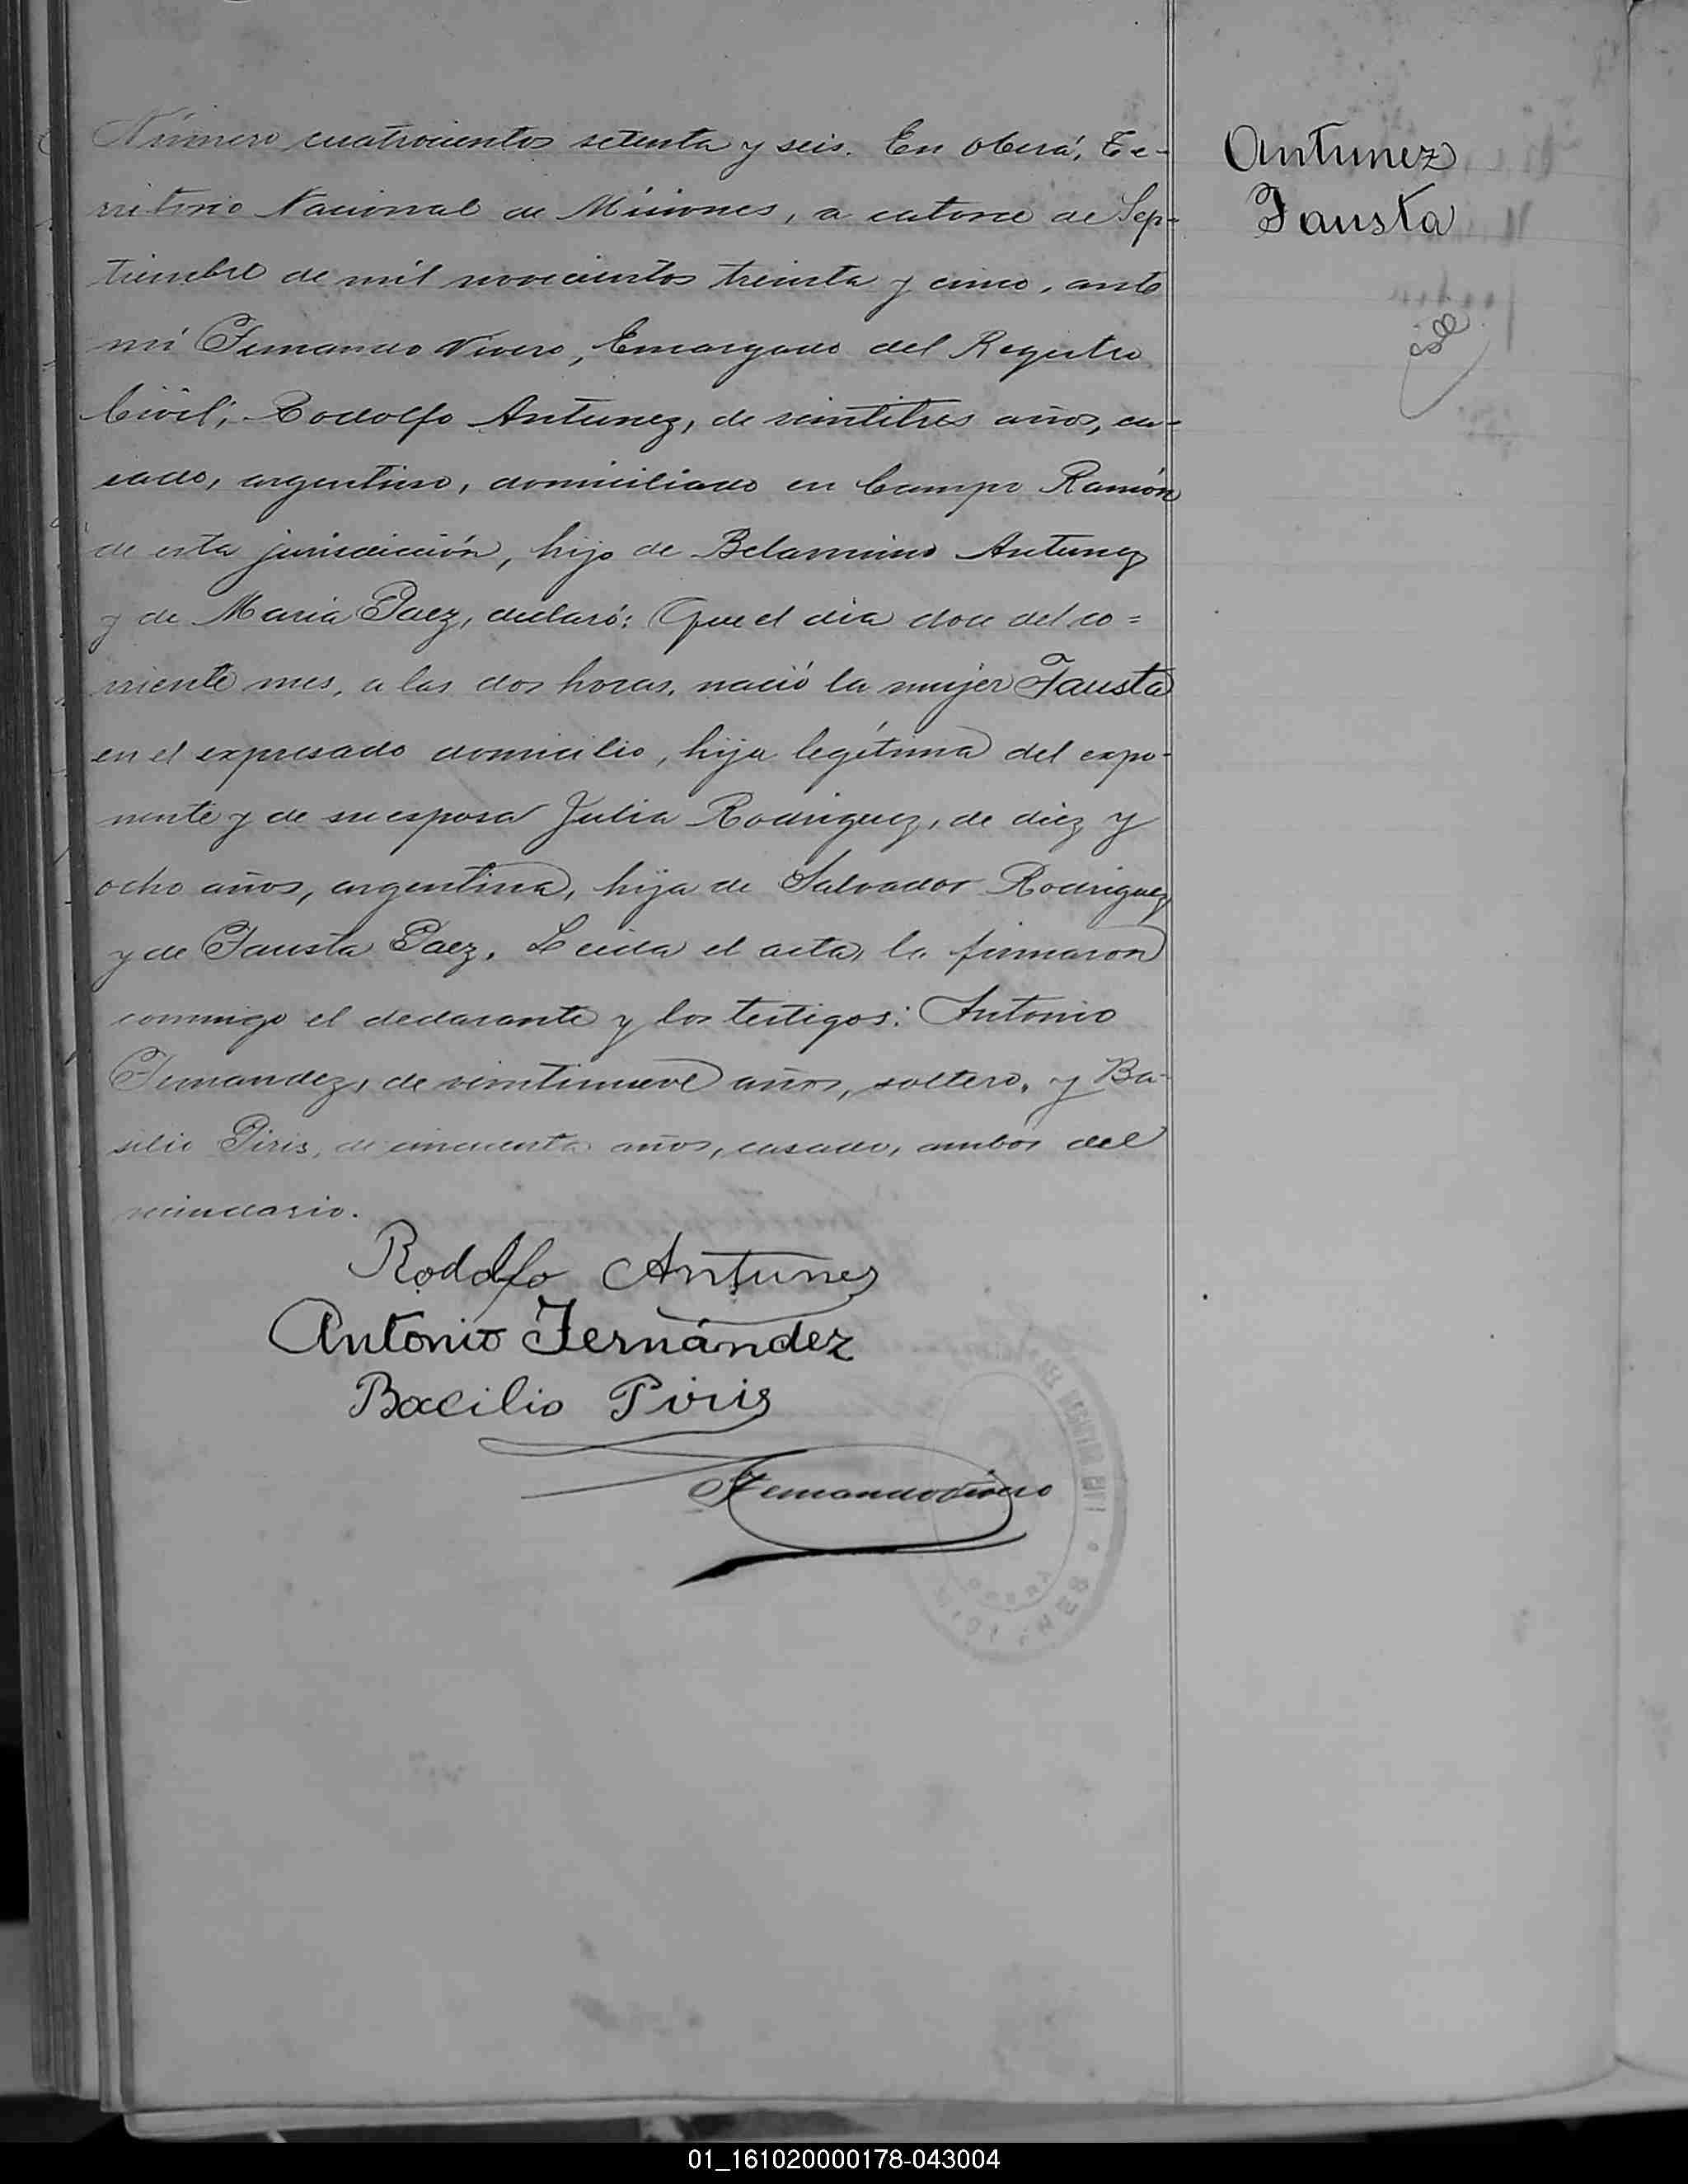 Número cuatrocientos setenta y seis. En Oberá, Te-
rritorio Nacional de Misiones, a catorce de Sep-
tiembre de mil novecientos treinta y cinco, ante
mi Fernando Vivero, Encargado del Registro
Civil; Rodolfo Antunez, de veintitres años, ca-
sado, argentino, domiciliado en Campo Ramón
de esta jurisdicción, hijo de Belarmino Antunez
y de Maria Paez, declaró: Que el dia doce del co=
rriente mes, a las dos horas, nació la mujer Fausta
en el expresado domicilio, hija legítima del expo-
nente y de su esposa Julia Rodriguez, de diez y
ocho años, argentina, hija de Salvador Rodriguez
y de Fausta Paez. Leida el acta, la firmaron
conmigo el declarante y los testigos: Antonio
Fernandez, de veintinueve años, soltero, y Ba-
silio Piris, de cincuenta años, casado, ambos del
vecindario.
Rodolfo Antunes
Antonio Fernández
Bacilio Piris
Fernando Vivero
Antunez
Fausta
01_161020000178-043004